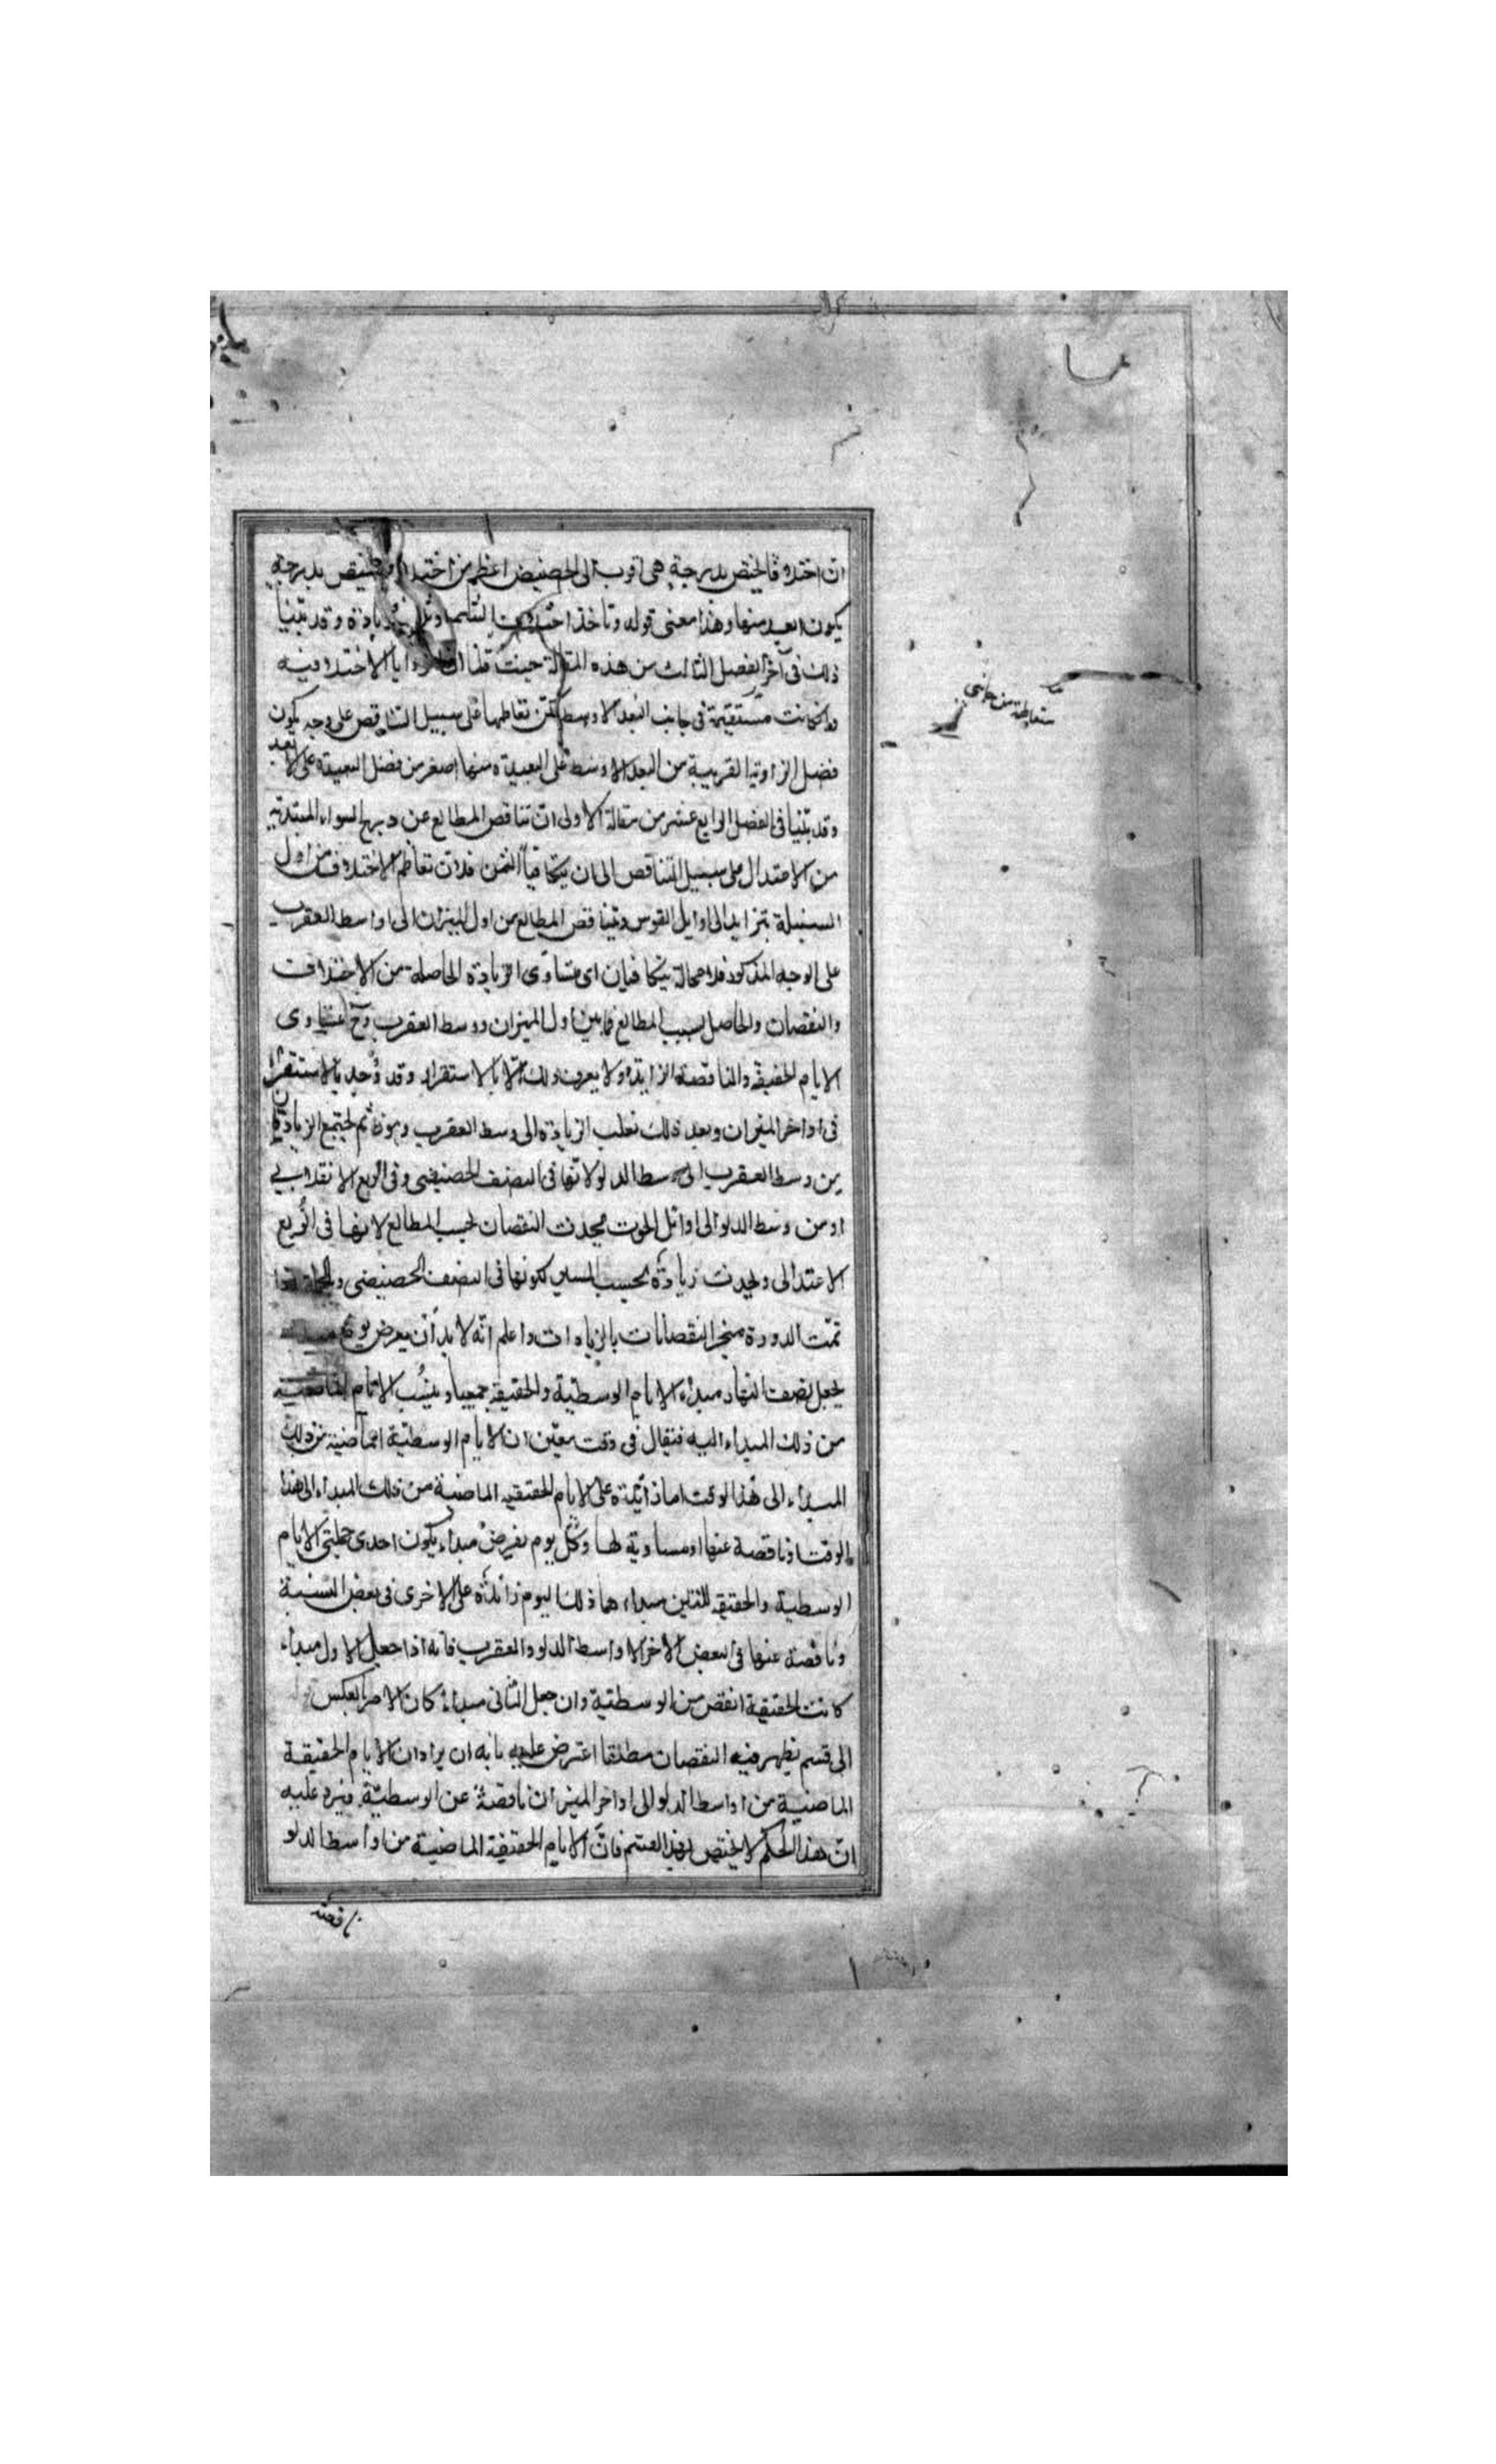 ان اختلافا يختص بدرجة هى اقرب الى الحضيض اعظم من اختلاف يختص بدرجة
يكون ابعد منها وهذا معنى قوله وتأخذ اختلافات فى الزيادة وقد بيّنا
ذلك فى آخر الفصل الثالث من هذه المقالة حيث قلنا ان زوايا الاختلافية
وان كانت فى جانب البعد الاوسط لكن تعاظمها على سبيل التناقص على وجه يكون
فضل الزاوية القريبة من البعد الاوسط على البعيدة منها اصغر من فضل البعيدة على الابعد
وقد بيّنا فى الفصل الرابع عشر من مقالة الاولى ان تناقص المطالع عن درج السواء المبتدئة
من الاعتدال على سبيل التناقص الى ان يتكافيا الثمن فلان تعاظم الاختلاف من اول
السنبلة بتزايد الى اوايل القوس وتناقص المطالع من اول الميزان الى اواسط العقرب
على الوجه المذكور فلا محالة يتكافيان اى يتساوى الزيادة الحاصلة من الاختلاف
والنقصان والحاصل بسبب المطالع فيما بين اول الميزان ووسط العقرب وح يتساوى
الايام الحقيقة والناقصة الزايدة ولا يعرف ذلك الا بالاستقراء وقد وُجد بالاستقراء
فى اواخر الميزان وبعد ذلك تغلب الزيادة الى وسط العقرب ثم يجتمع الزيادتان
من وسط العقرب الى وسط الدلو لانها فى النصف الحضيضى وفى الربع الانقلابى
او من وسط الدلو الى اوائل الحوت يحدث النقصان بحسب المطالع لانها فى الربع
الاعتدالى ويحدث زيادة بحسب المسير لكونها فى النصف الحضيضى
تمّت الدورة منجبر النقصانات بالزيادات واعلم انه لا بد ان يعرض يوم
يجعل نصف النهار مبدأ الايام الوسطية والحقيقة جميعا وينسب الايام الماضية
من ذلك المبداء اليه فيقال فى وقت معيّن ان الايام الوسطيّة الماضية من ذلك
المبداء الى هذا الوقت اما زائدة على الايام الحقيقيه الماضية من ذلك المبداء الى هذا
الوقت او ناقصة عنها او مساوية لها وكل يوم يفرض مبداء يكون احدى جملتى الايام
الوسطية والحقيقة اللتين مبداءهما ذلك اليوم زائدة على الاخرى فى بعض السنة
وناقصة عنها فى البعض الآخر الا اواسط الدلو والعقرب فانه اذا جعل الاول مبداء
كانت الحقيقية انقص من الوسطية وان جعل الثانى مبداء كان الامر بالعكس
الى قسم يظهر فيه النقصان مطلقا اعترض عليه بانه ان يراد ان الايام الحقيقة
الماضية من اواسط الدلو الى اواخر الميزان ناقصة عن الوسطيّة فيرد عليه
انّ هذا الحكم لا يختص بهذا القسم فانّ الايام الحقيقة الماضية من اواسط الدلو
ناقصة